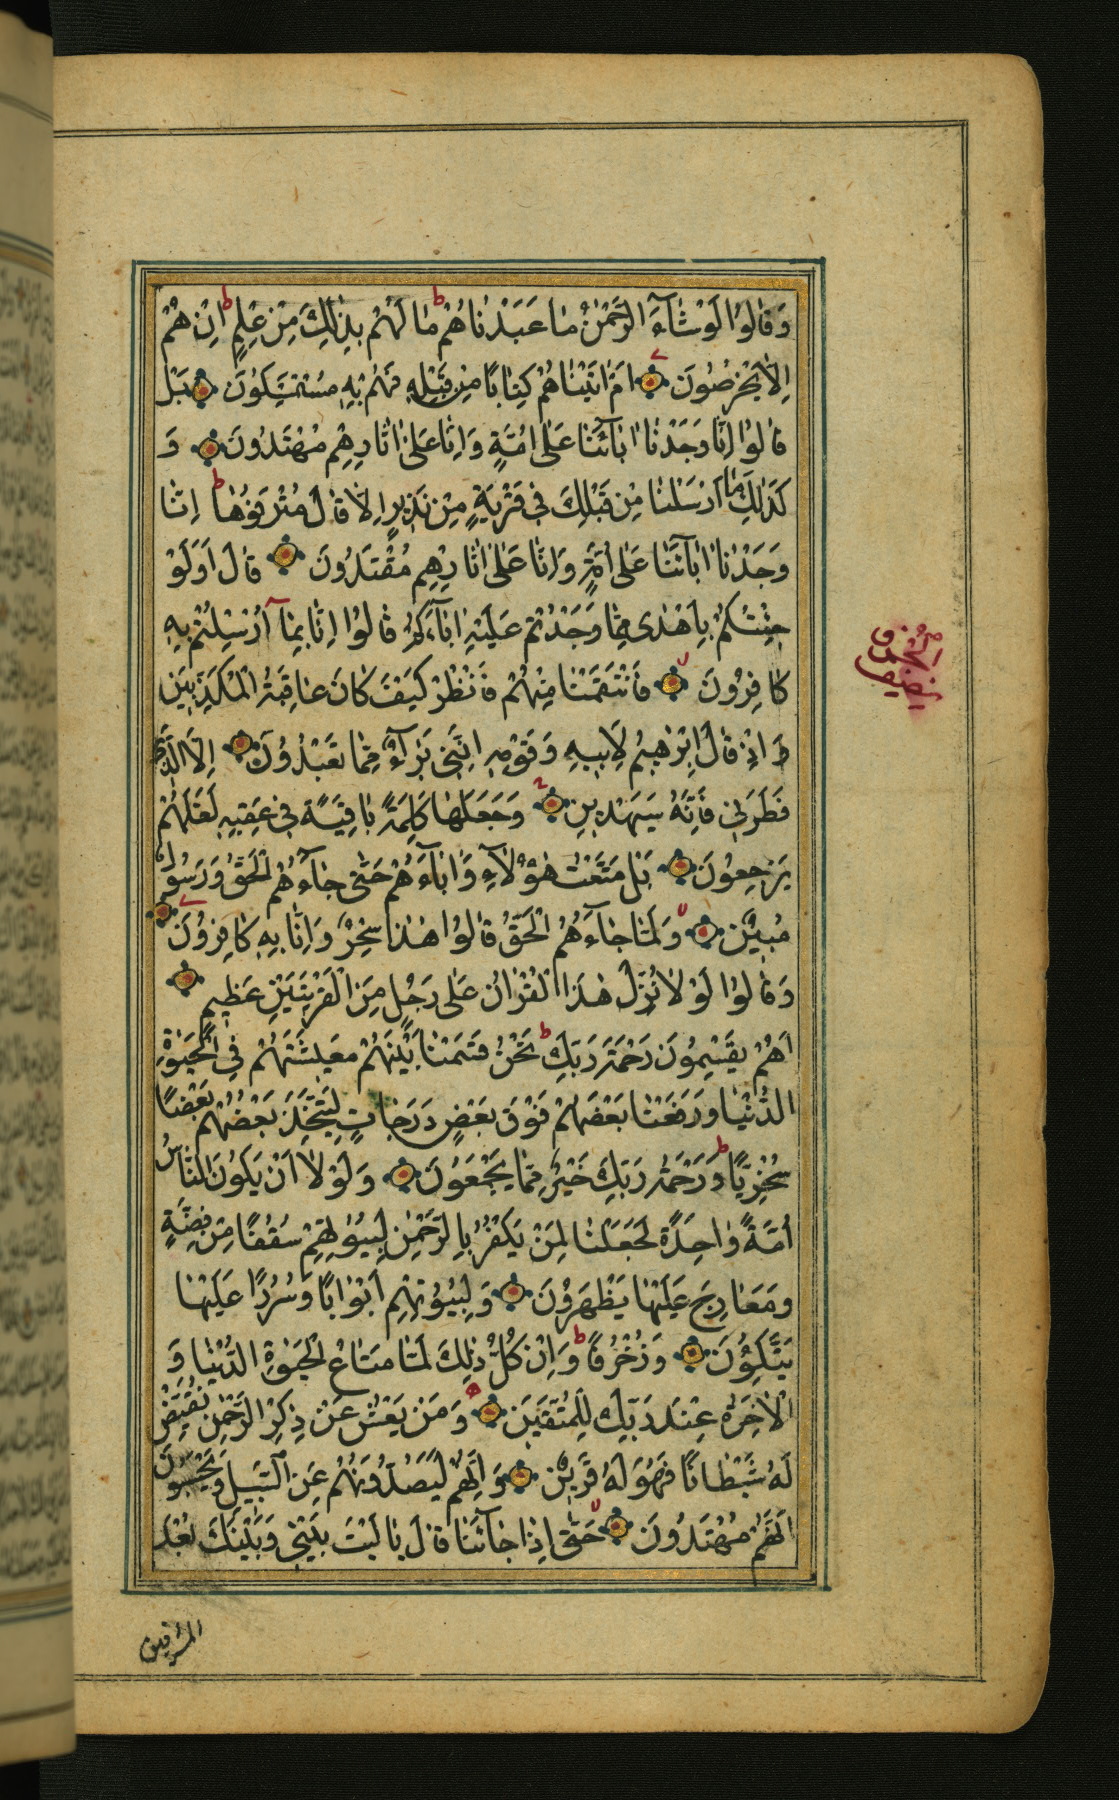 وَقَالُوا لَوْ شَآءَ الرَّحْمٰنُ مَا عَبَدْنَاهُمْ ط مَا لَهُمْ بِذٰلِكَ مِنْ عِلْمٍ ط اِنْ هُمْ
اِلَّا يَخْرُصُونَ اَمْ اٰتَيْنَاهُمْ كِتَابًا مِنْ قَبْلِهِ فَهُمْ بِهِ مُسْتَمْسِكُونَ بَلْ
قَالُوا اِنَّا وَجَدْنَا اٰبَآئَنَا عَلٰى اُمَّةٍ وَاِنَّا عَلٰى اٰثَارِهِمْ مُهْتَدُونَ وَ
كَذٰلِكَ مَا اَرْسَلْنَا مِنْ قَبْلِكَ فِي قَرْيَةٍ مِنْ نَذِيرٍ اِلَّا قَالَ مُتْرَفُوهَا ط اِنَّا
وَجَدْنَا اٰبَآئَنَا عَلٰى اُمَّةٍ وَاِنَّا عَلٰى اٰثَارِهِمْ مُقْتَدُونَ قَالَ اَوَلَوْ
جِئْتُكُمْ بِاَهْدٰى مِمَّا وَجَدْتُمْ عَلَيْهِ اٰبَآءَكُمْ قَالُوا اِنَّا بِمَا اُرْسِلْتُمْ بِهِ
كَافِرُونَ فَانْتَقَمْنَا مِنْهُمْ فَانْظُرْ كَيْفَ كَانَ عَاقِبَةُ الْمُكَذِّبِينَ
وَ اِذْ قَالَ اِبْرٰهِيمُ لِاَبِيهِ وَقَوْمِهِ اِنَّنِي بَرَآءٌ مِمَّا تَعْبُدُونَ اِلَّا الَّذِي
فَطَرَنِي فَاِنَّهُ سَيَهْدِينِ وَجَعَلَهَا كَلِمَةً بَاقِيَةً فِي عَقِبِهِ لَعَلَّهُمْ
يَرْجِعُونَ بَلْ مَتَّعْتُ هٰؤُلَآءِ وَاٰبَآءَهُمْ حَتّٰى جَآءَهُمُ الْحَقُّ وَرَسُولٌ
مُبِينٌ وَلَمَّا جَآءَهُمُ الْحَقُّ قَالُوا هٰذَا سِحْرٌ وَاِنَّا بِهِ كَافِرُونَ
وَقَالُوا لَوْلَا نُزِّلَ هٰذَا الْقُرْاٰنُ عَلٰى رَجُلٍ مِنَ الْقَرْيَتَيْنِ عَظِيمٍ
اَهُمْ يَقْسِمُونَ رَحْمَتَ رَبِّكَ ط نَحْنُ قَسَمْنَا بَيْنَهُمْ مَعِيشَتَهُمْ فِي الْحَيٰوةِ
الدُّنْيَا وَرَفَعْنَا بَعْضَهُمْ فَوْقَ بَعْضٍ دَرَجَاتٍ لِيَتَّخِذَ بَعْضُهُمْ بَعْضًا
سُخْرِيًّا ط وَرَحْمَتُ رَبِّكَ خَيْرٌ مِمَّا يَجْمَعُونَ وَلَوْلَا اَنْ يَكُونَ النَّاسُ
اُمَّةً وَاحِدَةً لَجَعَلْنَا لِمَنْ يَكْفُرُ بِالرَّحْمٰنِ لِبُيُوتِهِمْ سُقُفًا مِنْ فِضَّةٍ
وَمَعَارِجَ عَلَيْهَا يَظْهَرُونَ وَلِبُيُوتِهِمْ اَبْوَابًا وَسُرُرًا عَلَيْهَا
يَتَّكِؤُنَ وَزُخْرُفًا ط وَاِنْ كُلُّ ذٰلِكَ لَمَّا مَتَاعُ الْحَيٰوةِ الدُّنْيَا وَ
الْاٰخِرَةُ عِنْدَ رَبِّكَ لِلْمُتَّقِينَ وَمَنْ يَعْشُ عَنْ ذِكْرِ الرَّحْمٰنِ نُقَيِّضْ
لَهُ شَيْطَانًا فَهُوَ لَهُ قَرِينٌ وَاِنَّهُمْ لَيَصُدُّونَهُمْ عَنِ السَّبِيلِ وَيَحْسَبُونَ
اَنَّهُمْ مُهْتَدُونَ حَتّٰى اِذَا جَآئَنَا قَالَ يَا لَيْتَ بَيْنِي وَبَيْنَكَ بُعْدَ
المشرقين